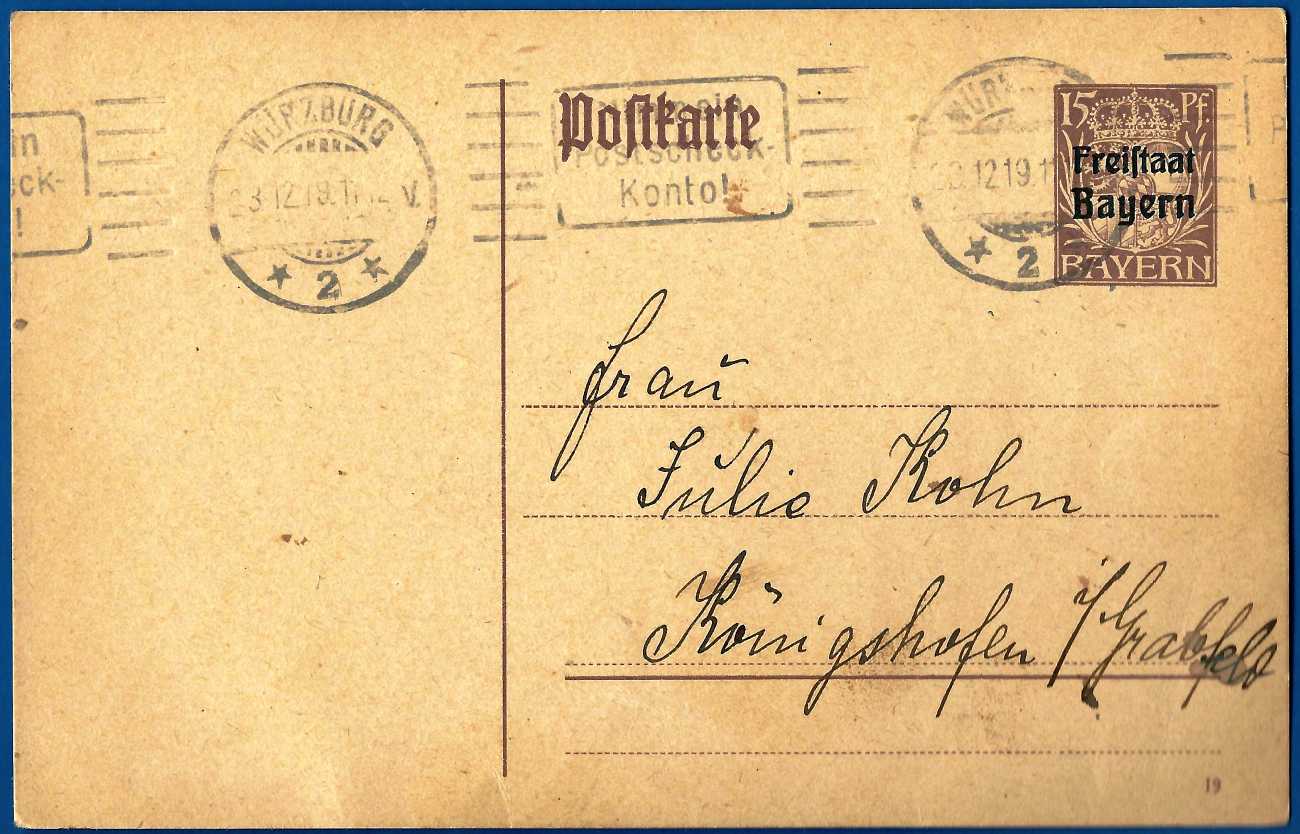 in
ck-
!
WÜRZBURG
23.12.19. 11-12 V.
* 2 *
Postkarte
mein
Postscheck-
Konto!
WÜRZ
12 19. 11
* 2
15 Pf.
Freistaat
Bayern
BAYERN
Frau
Julie Kohn
Königshofen i/Grabfeld
19